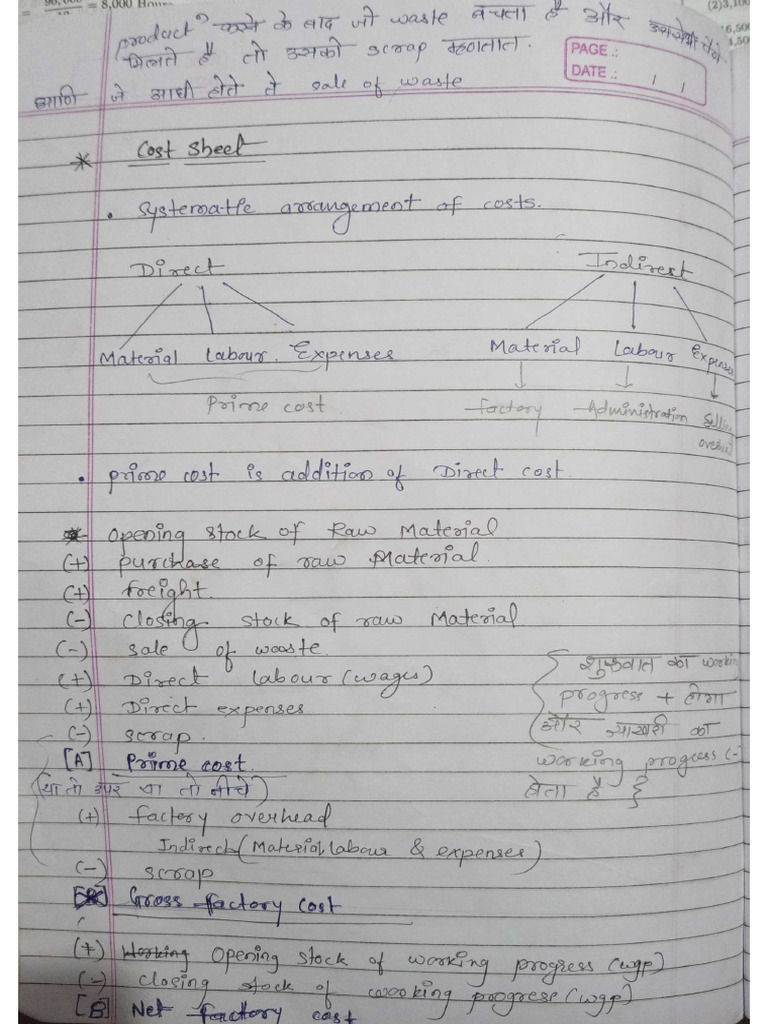 = 8,000 Hours
product^n करने के बाद जो waste बचता है और उससे भी पैसे
मिलते है तो उसको scrap म्हणतात.
PAGE.:
DATE.: / /
आणि जे आधी होते ते sale of waste
* Cost Sheet
• Systematic arrangement of costs.
Direct Indirect
Material Labour. Expenses Material Labour Expenses
Prime cost factory Administration
• prime cost is addition of Direct cost.
* opening stock of Raw Material
(+) purchase of raw Material.
(+) freight.
(-) closing stock of raw Material
(-) sale of waste.
(+) Direct labour (wages)
(+) Direct expenses
(-) scrap.
[A] Prime cost.
{ शुरुवात का working
progress + होगा
और आखरी का
working progress (-)
होता है }
(या तो उपर या तो नीचे)
(+) factory overhead
Indirect (Material, labour & expenses)
(-) scrap
Gross factory cost
(+) Working Opening stock of working progress (wgp)
(-) closing stock of working progress (wgp)
[B] Net factory cost